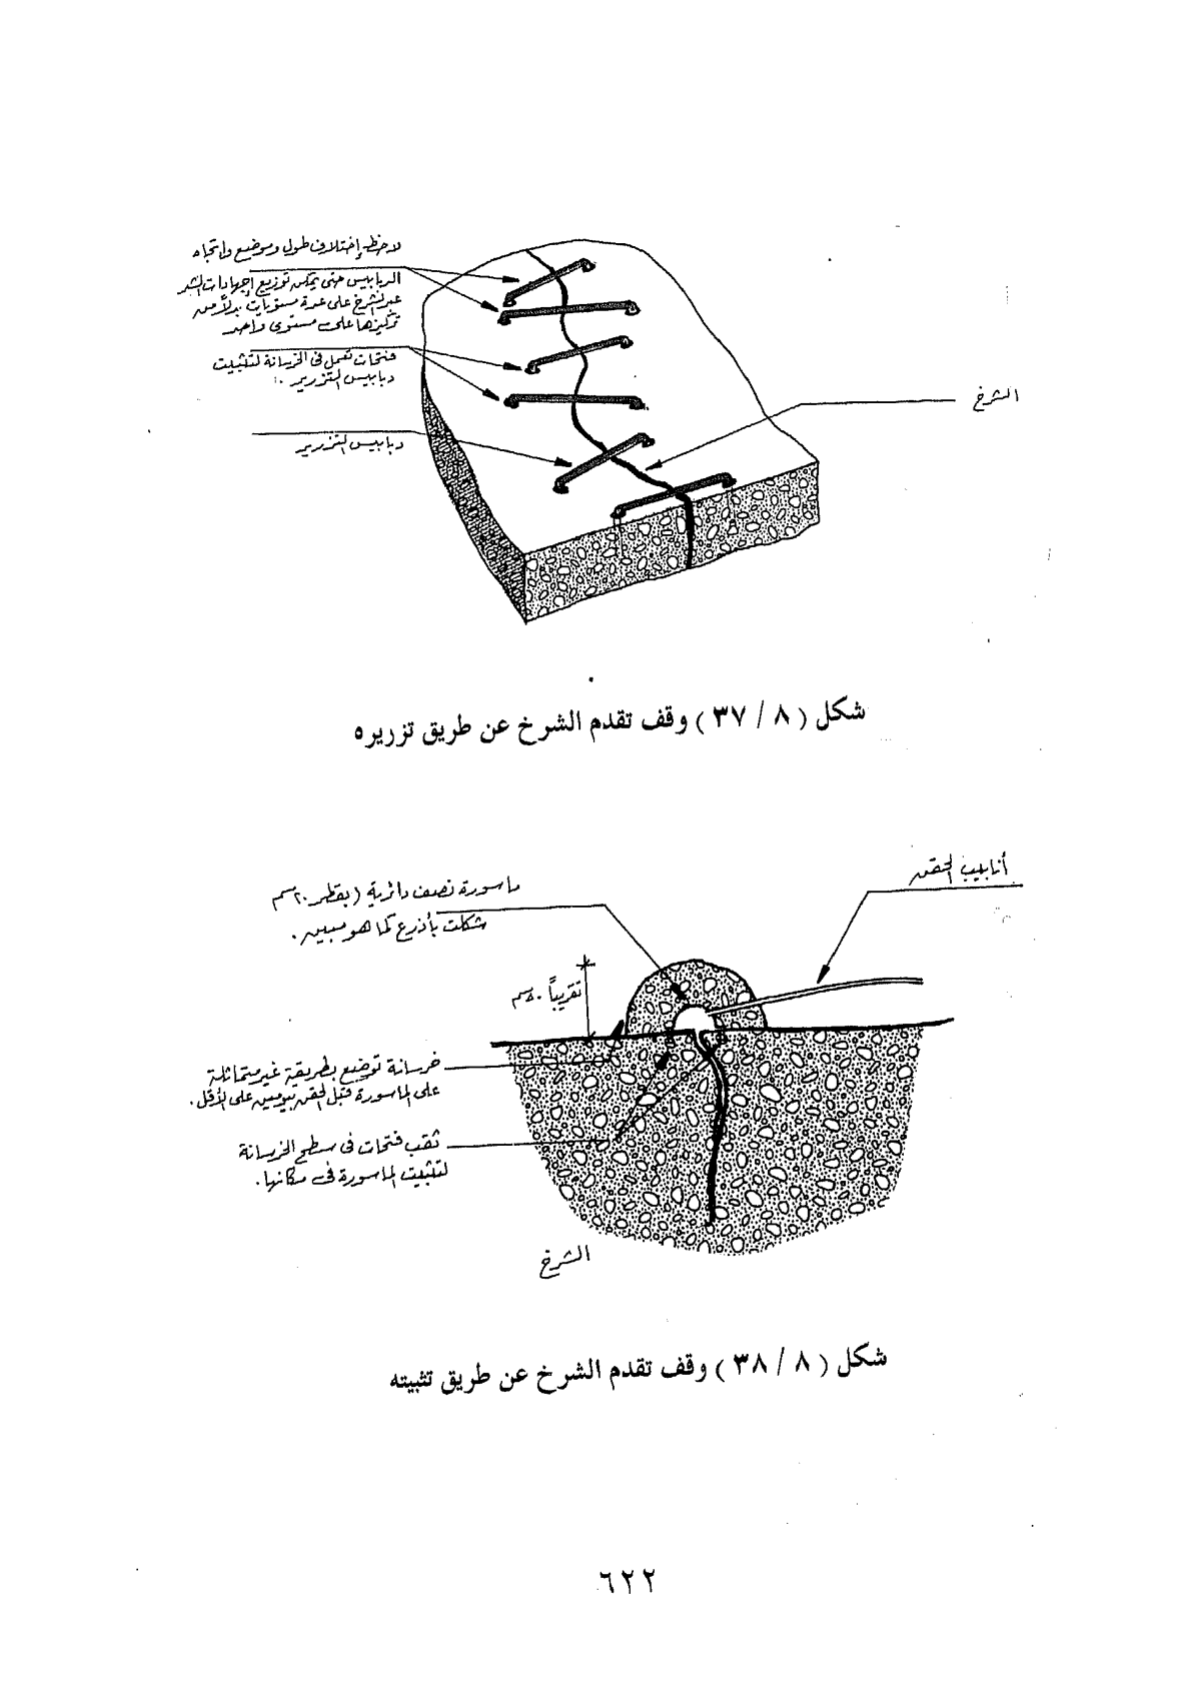 لاحظ إختلاف طول وموضع واتجاه
الدبابيس حتى يمكن توزيع إجهادات الشد
عبر الشرخ على عدة مستويات بدلاً من
تركيزها على مستوى واحد
فتحات تعمل فى الخرسانة لتثبيت
دبابيس التزرير .
دبابيس التزرير
الشرخ
شكل ( ٨ / ٣٧ ) وقف تقدم الشرخ عن طريق تزريره
أنابيب الحقن
ماسورة نصف دائرية ( بقطر ٢٠ سم
شكلت بأذرع كما هو مبين .
تقريباً سم
خرسانة توضع بطريقة غير متماثلة
على الماسورة قبل الحقن بيومين على الأقل .
ثقب فتحات فى سطح الخرسانة
لتثبيت الماسورة فى مكانها .
الشرخ
شكل ( ٨ / ٣٨ ) وقف تقدم الشرخ عن طريق تثبيته
٦٢٢